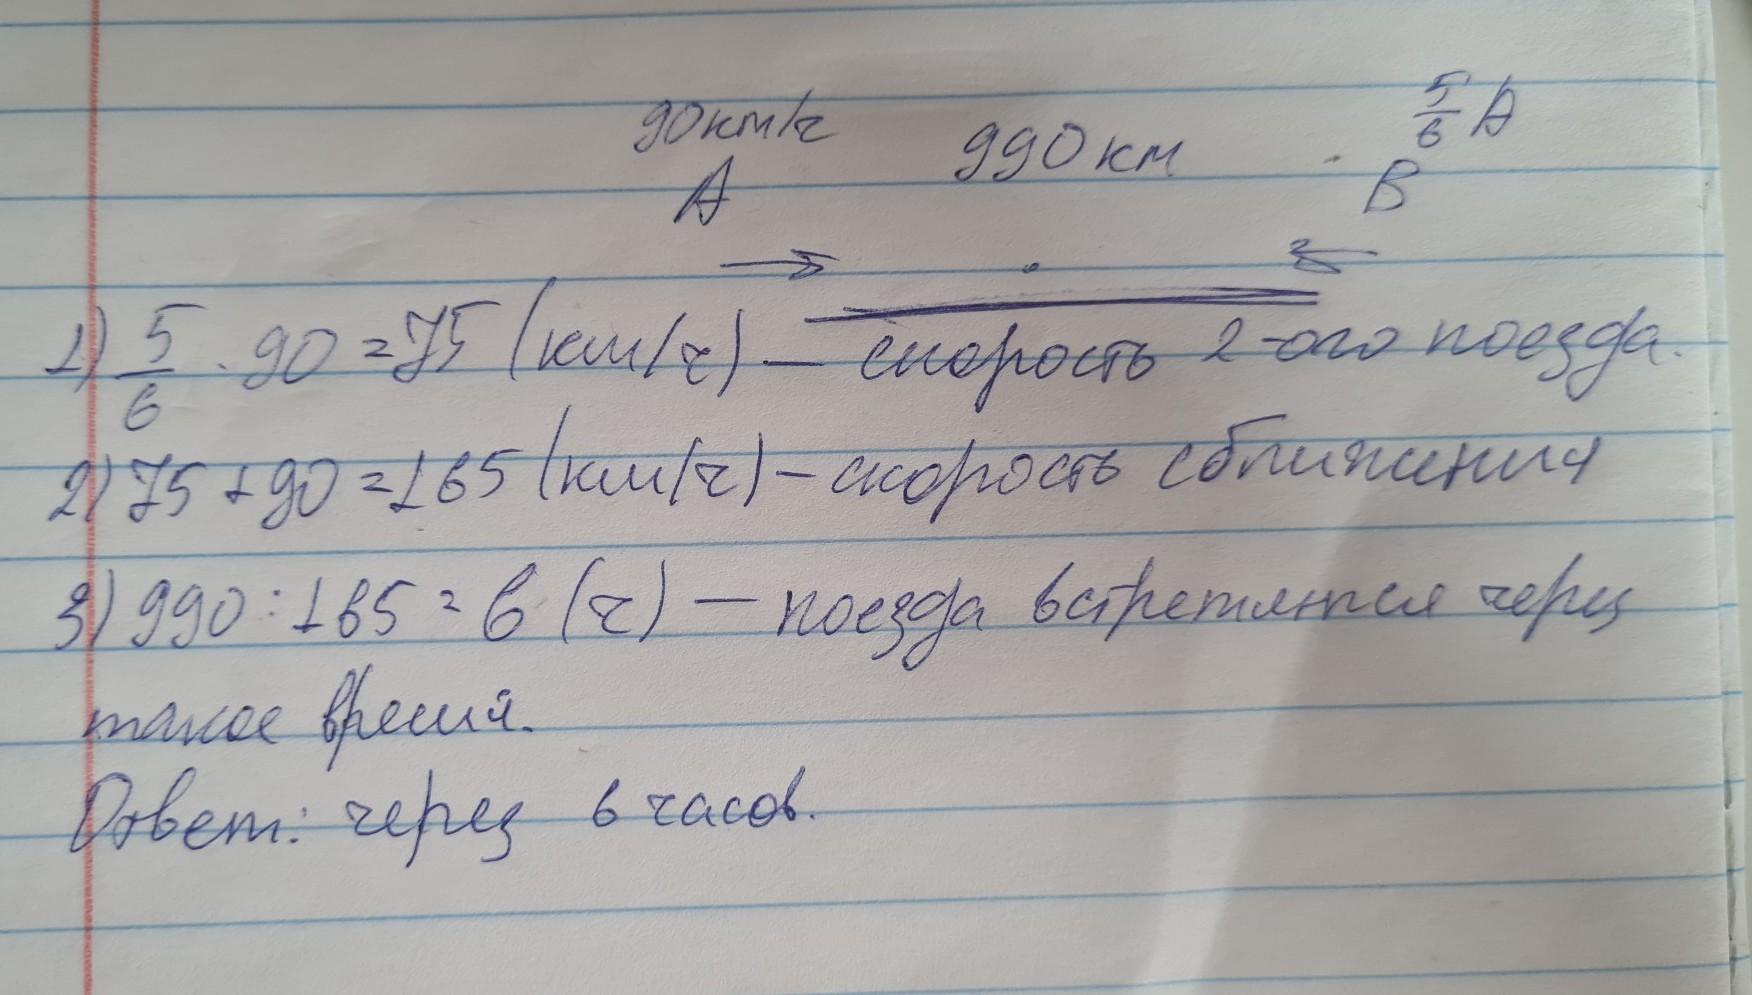 90км/ч 990 км 5/6 A
A B
1) 5/6 · 90 = 75 (км/ч) — скорость 2-ого поезда.
2) 75 + 90 = 165 (км/ч) – скорость сближения
3) 990 : 165 = 6 (ч) — поезда встретятся через
такое время.
Ответ: через 6 часов.